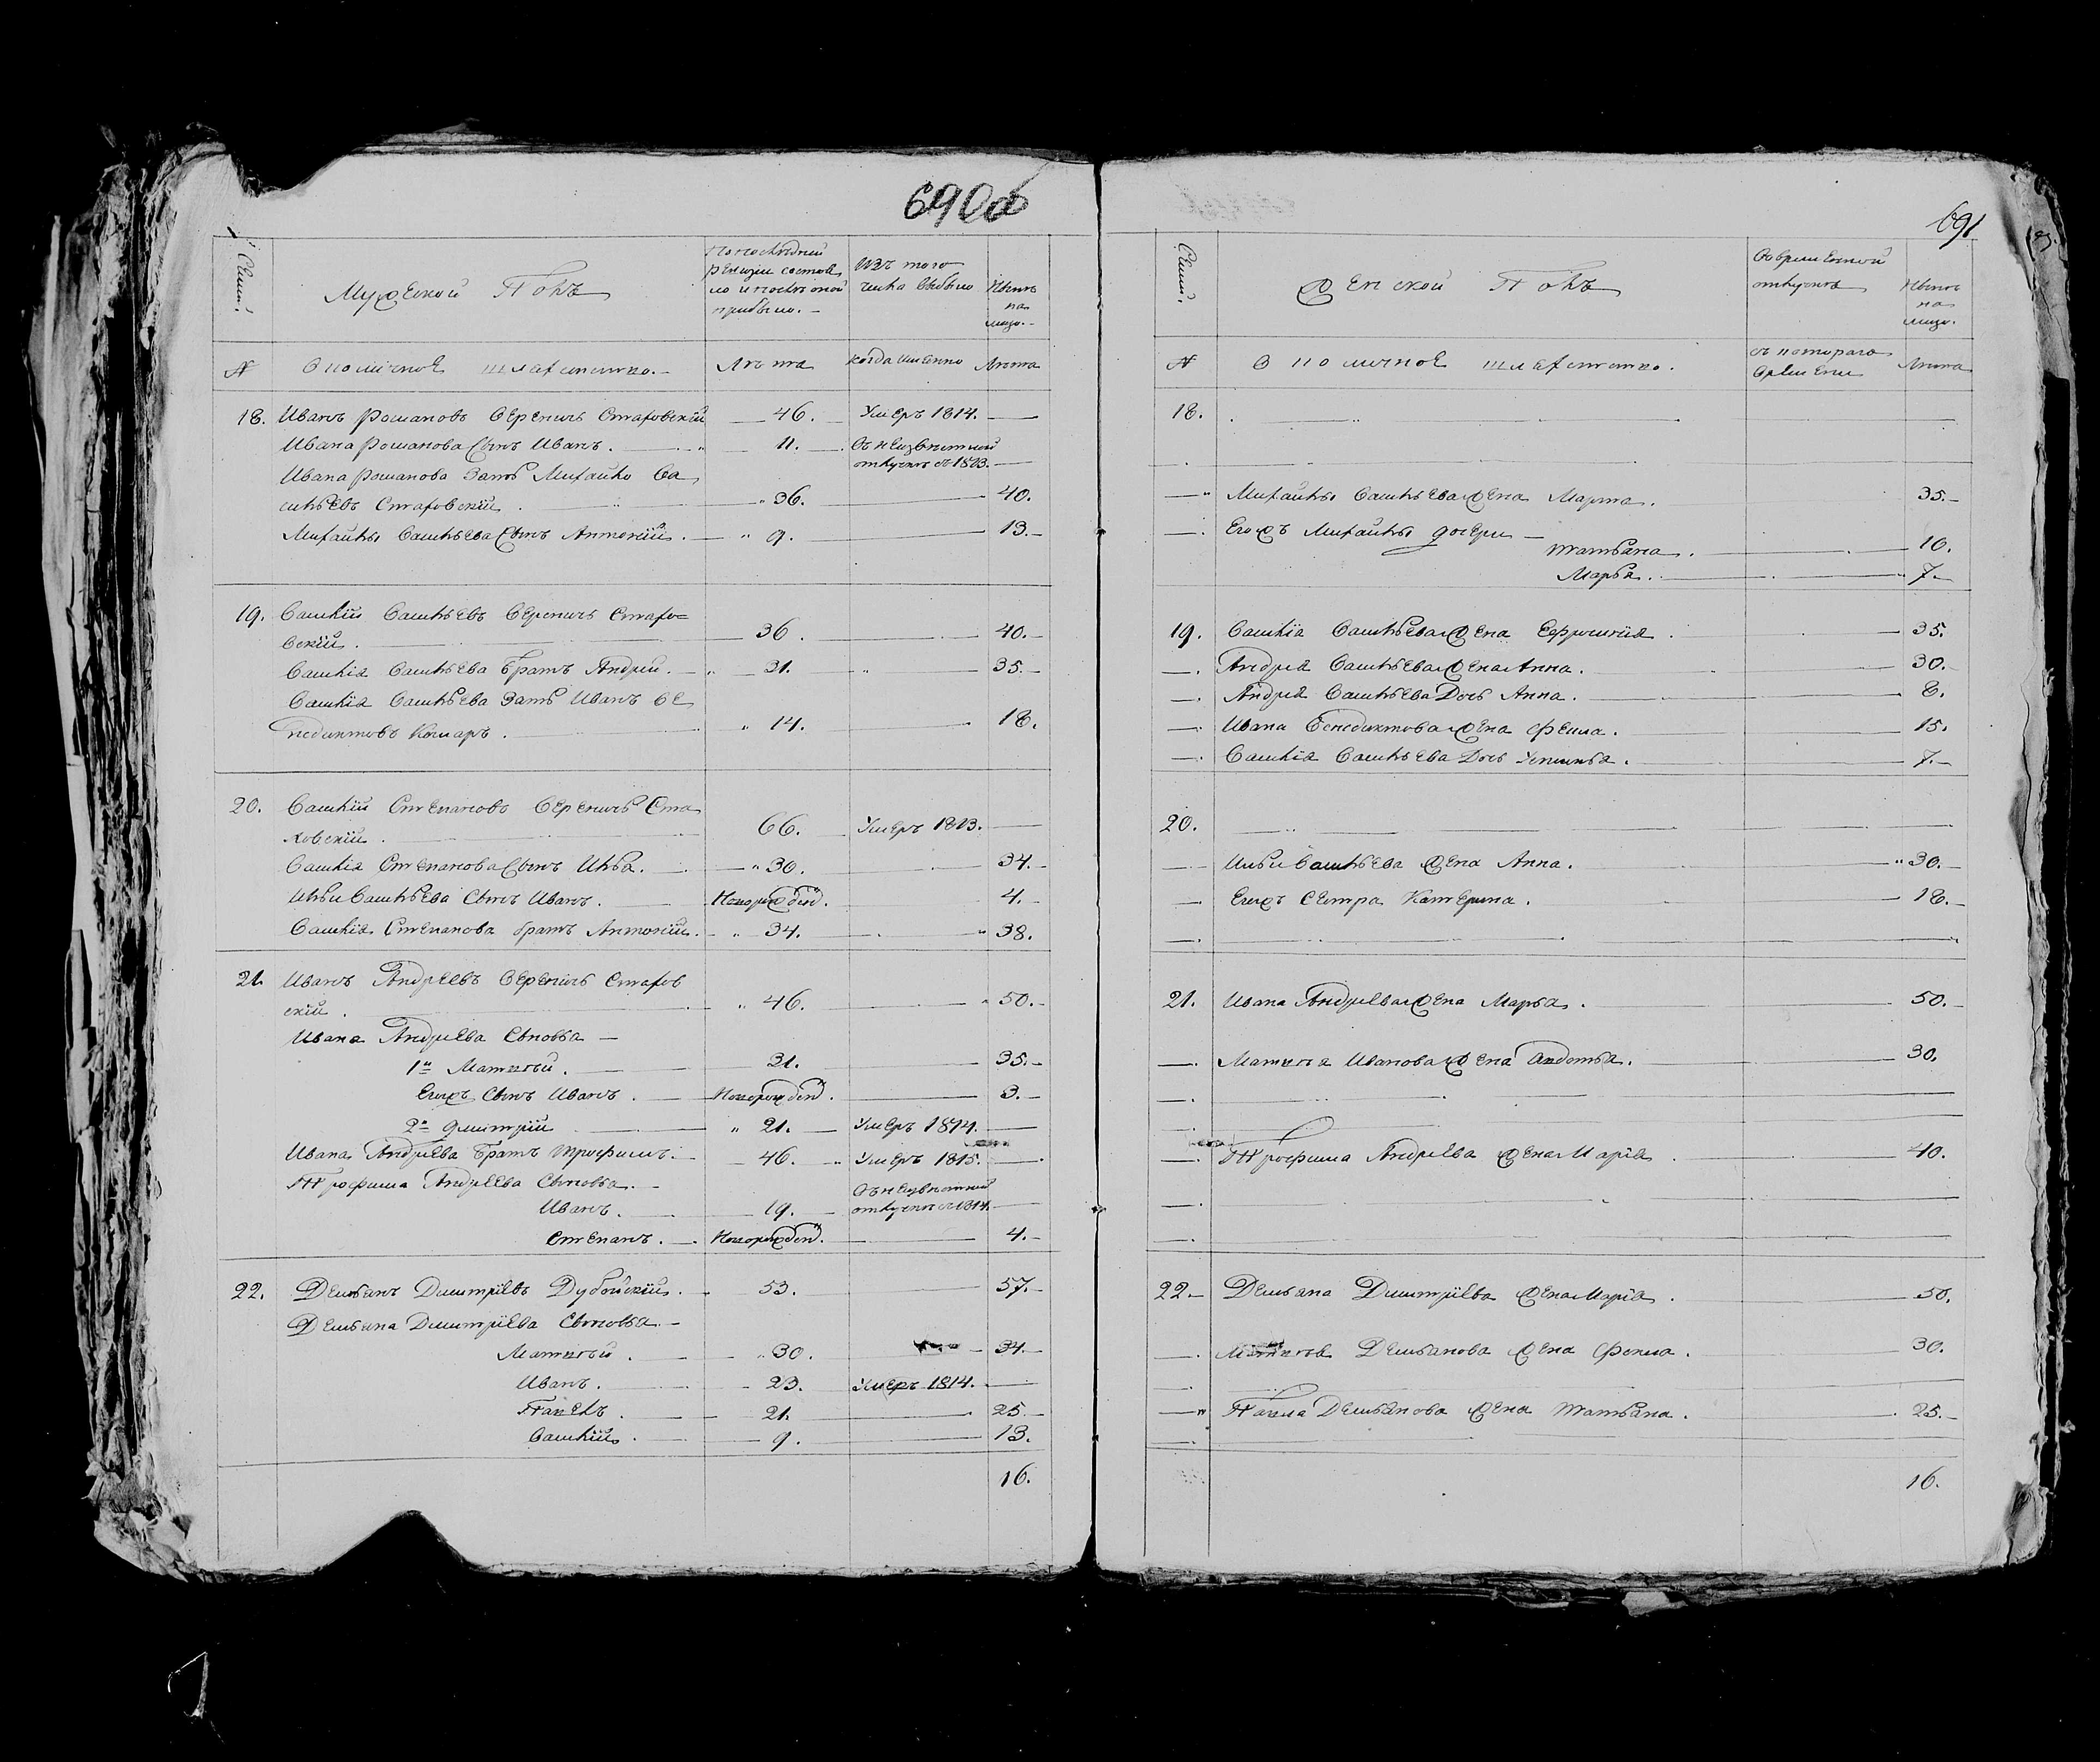 690об
Семьи
Мужеской Полъ
По последней
ревизии состоя
ло и после оной
прибыло.
Изъ того
числа выбыло
Ныне
на
лицо.
№
О
Лета
когда именно
Лета
18. Иванъ Романовъ Вереничъ Стаховскій 46. Умеръ 1814.
Ивана Романова Сынъ Иванъ. 11. Въ неизвестной
отлучке с 1813.
Ивана Романова Зять Михайло Ва
сильевъ Стаховскій 36. 40.
Михайлы Васильева Сынъ Антоній. 9. 13.
19. Василій Васильевъ Вереничъ Стахо=
вскій. 36. 40.
Василія Васильева Братъ Андрей. 31. 35.
Василія Васильева Зять Иванъ Бе
недиктовъ Комаръ. 14. 18.
20. Василій Степановъ Вереничъ Ста
ховскій. 66. Умеръ 1813.
Василія Степанова Сынъ Илья. 30. 34.
Ильи Васильева Сынъ Иванъ. Новорожден. 4.
Василія Степанова братъ Антоній. 34. 38.
21. Иванъ Андреевъ Вереничъ Стахов
скій. 46. 50.
Ивана Андреева Сыновья
1й Матвей. 31. 35.
Егожъ Сынъ Иванъ. Новорожден. 3.
2й Дмитрій 21. Умеръ 1814.
Ивана Андреева Братъ Трофимъ. 46. Умеръ 1815.
Трофима Андреева Сыновья.
Иванъ. 19. Въ неизвестной
отлучке с 1814.
Степанъ. Новорожден. 4.
22. Демьянъ Дмитріевъ Дубойскій. 53. 57.
Демьяна Дмитріева Сыновья
Матвей. 30. 34.
Иванъ. 23. Умеръ 1814.
Павелъ. 21. 25.
Василій. 9. 13.
16.
691
Семьи
Женской Полъ
Во временной
отлучке
Ныне
на
лицо.
№
О
съ котораго
времени
Лета
18.
Михайлы Васильева Жена Марта. 35.
Егожъ Михайлы дочери
Татьяна. 10.
Марья. 7.
19. Василія Васильева Жена Ефросинія 35.
Андрея Васильева Жена Анна. 30.
Андрея Васильева Дочь Анна. 8.
Ивана Бенедиктова Жена Фекла. 15.
Василія Васильева Дочь Устинья. 7.
20.
Ильи Васильева Жена Анна. 30.
Егожъ Сестра Катерина. 18.
21. Ивана Андреева Жена Марья. 50.
Матвея Иванова Жена Авдотья. 30.
Трофима Андреева Жена Марія 40.
22. Демьяна Дмитріева Жена Марія. 50.
Матвея Демьянова Жена Фекла. 30.
Павла Демьянова Жена Татьяна. 25.
16.